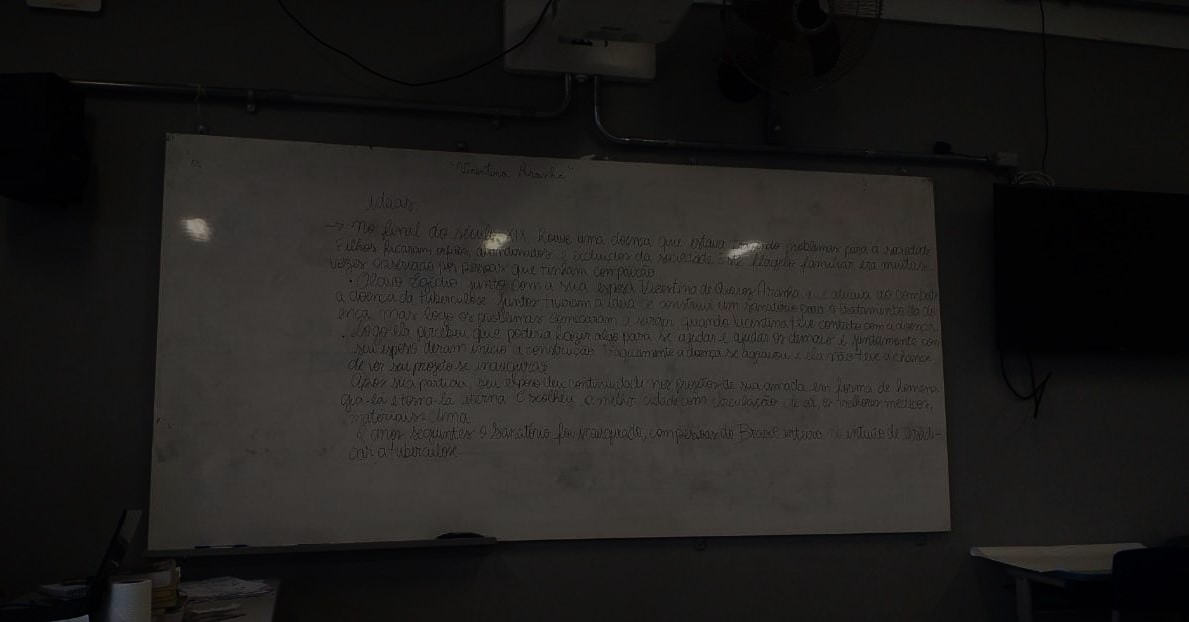 "Vicentina Aranha"
ideias
→ No final do século XIX houve uma doença que estava problemas para a sociedade
Filhos ficaram orfãos, abandonados e excluidos da sociedade familiar era muitas
vezes observado por pessoas que tinham compaixão
• Olavo Egídio junto com a sua esposa Vicentina de Queiroz Aranha
a doença da tuberculose juntos tiveram a ideia de construir um sanatório para o tratamento da do
ença, mas logo os problemas começaram a surgir quando Vicentina teve contato com a doença.
. Logo ela percebeu que poderia fazer algo para se ajudar e ajudar os demais e juntamente com
seu esposo deram início a construção a doença se agravou e ela não teve a chance
de ver seu projeto se inaugurar
Após sua partida, seu esposo deu continuidade nos projetos de sua amada em forma de homena
gia-la e torna-la eterna Escolheu a melhor cidade com circulação de ar, os melhores médicos,
materiais e clima
anos seguintes o Sanatório foi inaugurado, com pessoas do Brasil intuito de erradi-
car a tuberculose